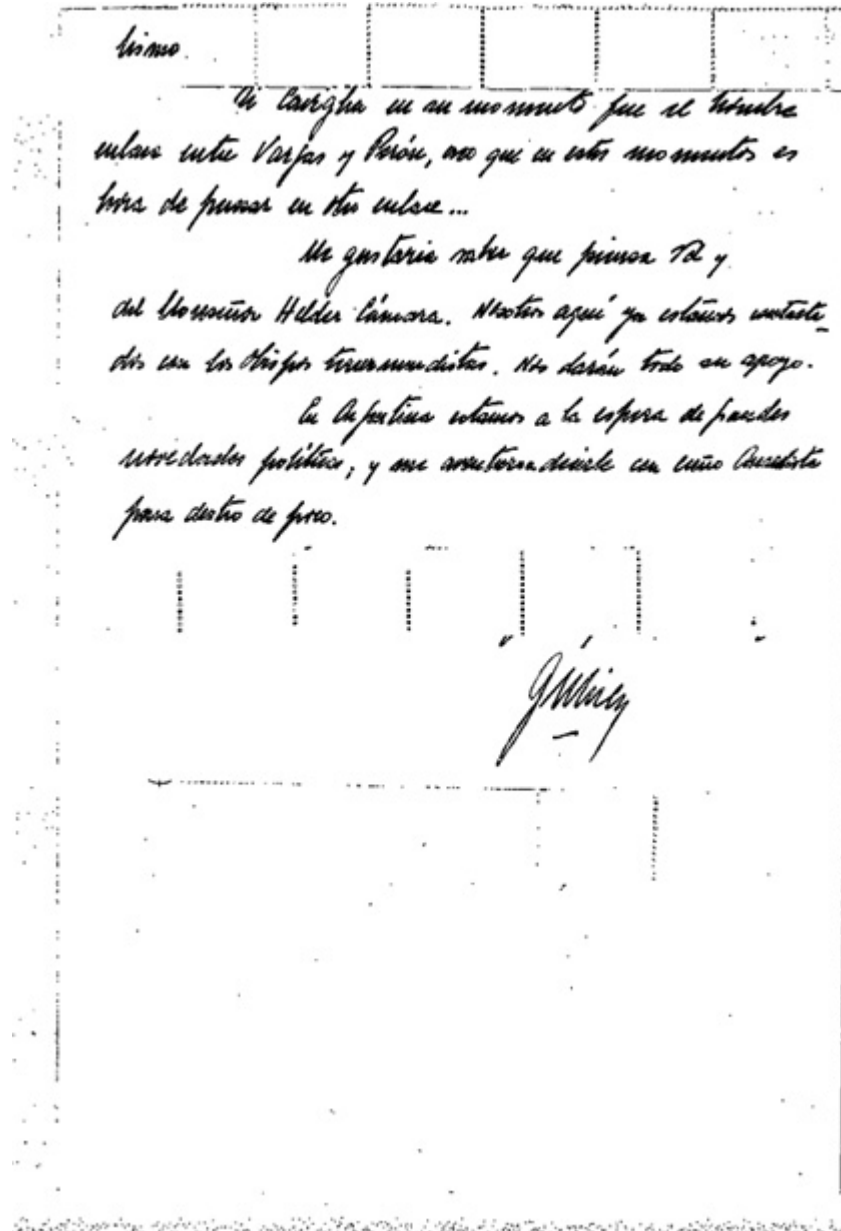 lismo.
Si Caviglia en su momento fue el hombre
enlace entre Vargas y Perón, creo que en estos momentos es
hora de pensar en otro enlace...
Me gustaría saber que piensa Vd y
del Monseñor Helder Cámara. Nosotros aquí ya estamos contacta_
dos con los obispos tercermundistas. Nos darán todo su apoyo.
En Argentina estamos a la espera de grandes
novedades políticas, y me decirle con cuño
para dentro de poco.